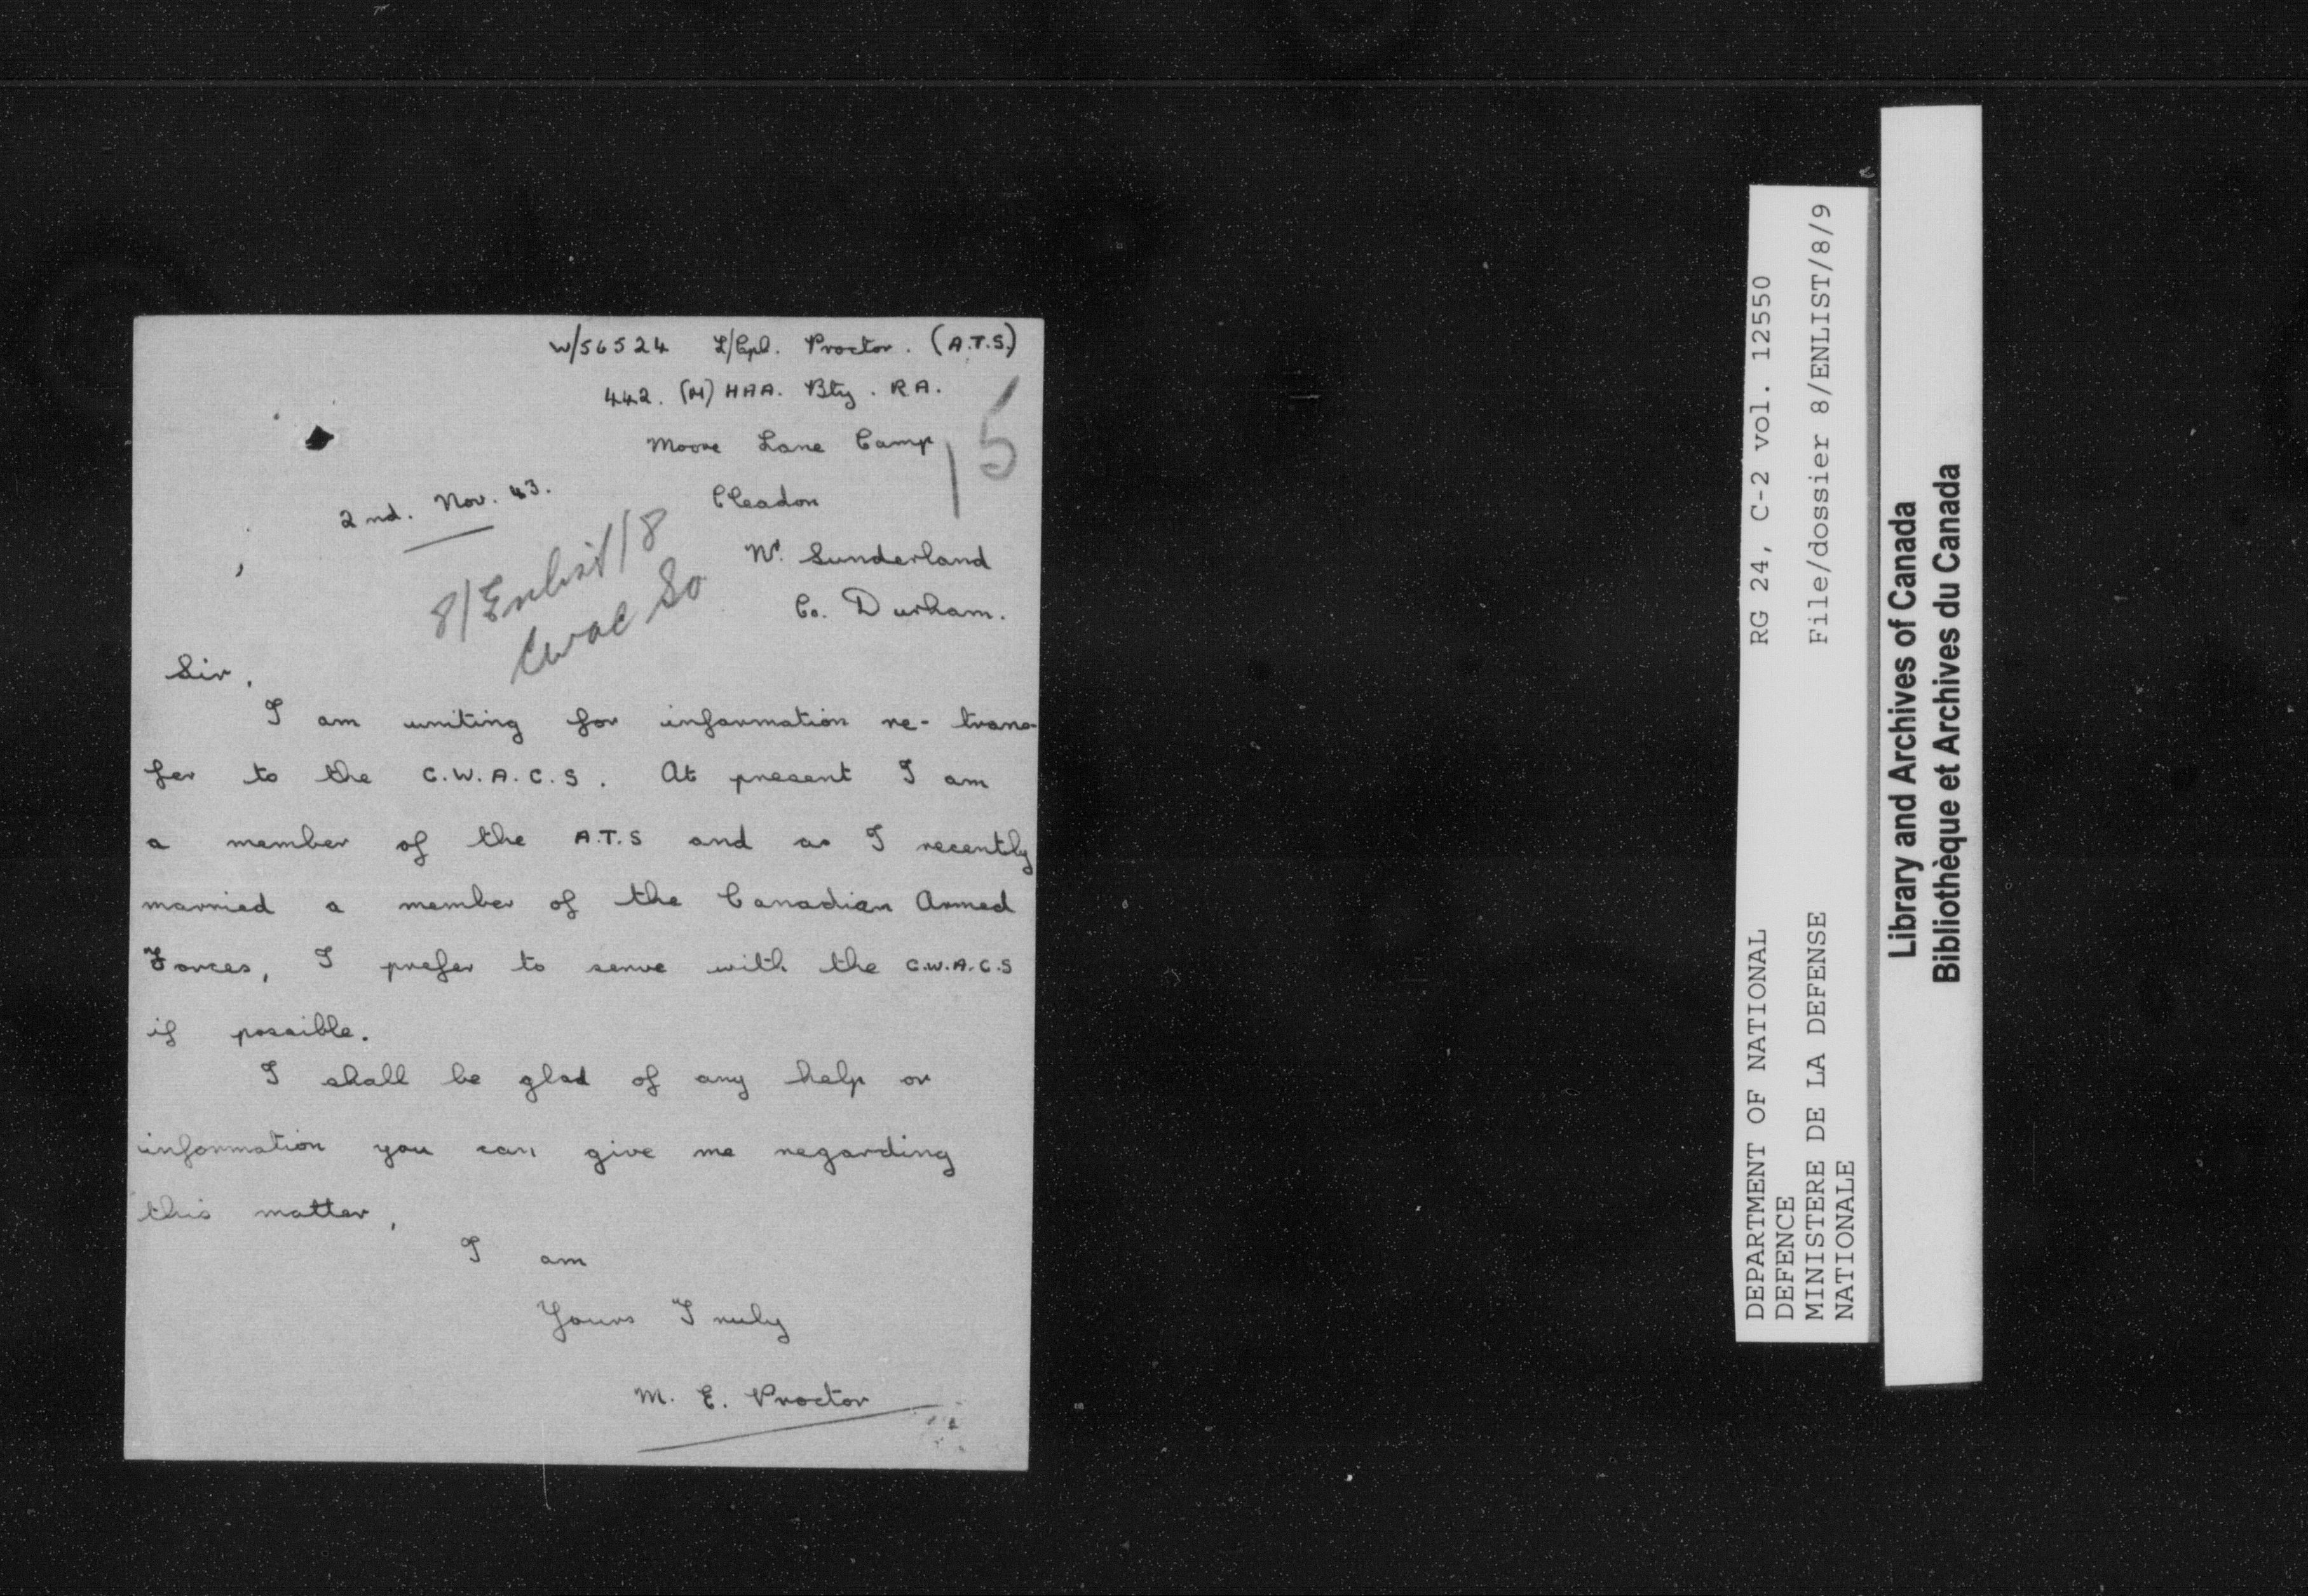 W/56524 L/Cpl. Proctor. (A.T.S.)
442. (M) HAA. Bty. RA.
15
Moore Lane Camp
2nd. Nov. 43.
Cleadon
8/Enlist/8
Nr. Sunderland
Cwac So
Co. Durham.
Sir,
I am writing for information re- trans-
fer to the C.W.A.C.S. At present I am
a member of the A.T.S and as I recently
married a member of the Canadian Armed
Forces, I prefer to serve with the C.W.A.C.S
if possible.
I shall be glad of any help or
information you can give me regarding
this matter,
I am
Yours Truly
M. E. Proctor
DEPARTMENT OF NATIONAL
DEFENCE
MINISTERE DE LA DEFENSE
NATIONALE
RG 24, C-2 vol. 12550
File/dossier 8/ENLIST/8/9
Library and Archives of Canada
Bibliothèque et Archives du Canada